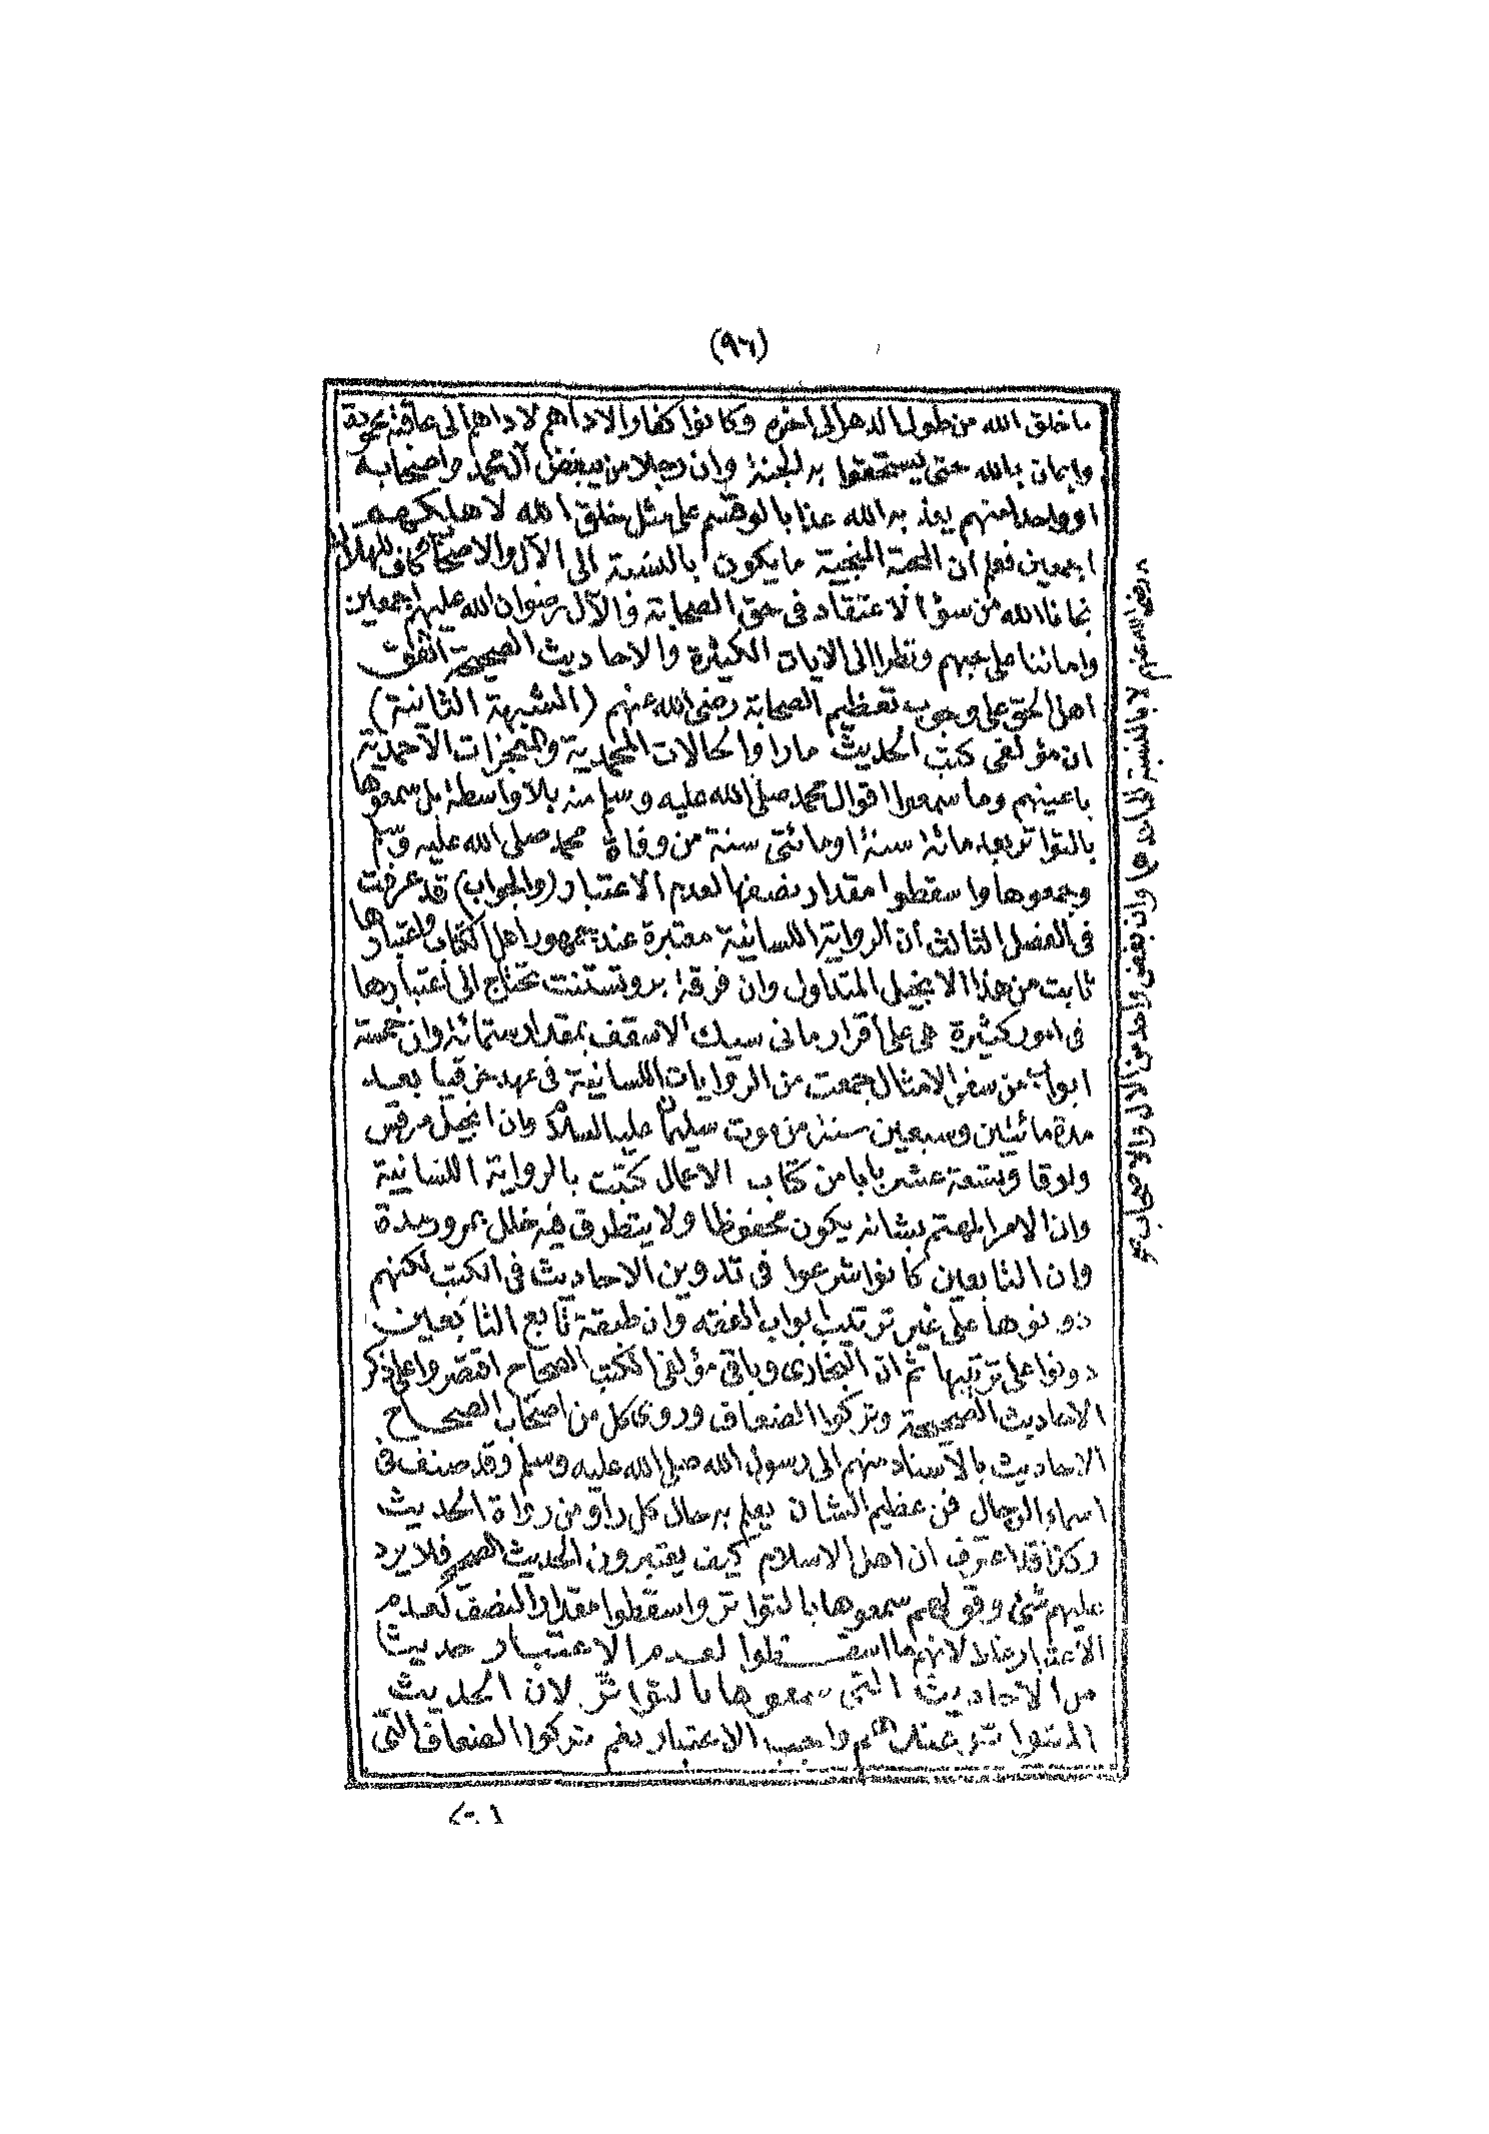 (٩٦)
ما خلق الله من طول الدهر الى اخره وكانوا كفارا لاداهم لاداهم الى عاقبة محمودة
وايمان بالله حتى يستحقوا به الجنة وان رجلا من يبغض آل محمد واصحابه
او واحدا منهم يعذبه الله عذابا لو قسم على مثل خلق الله لاهلكهم
اجمعين فعلم ان المحبة المنجية ما يكون بالنسبة الى الآل والاصحاب كاف للهلاك
نجانا الله من سوء الاعتقاد فى حق الصحابة والآل رضوان الله عليهم اجمعين
واماتنا على حبهم ونظرا الى الايات الكثيرة والاحاديث الصحيحة اتفقت
اهل الحق على وجوب تعظيم الصحابة رضى الله عنهم (الشبهة الثانية)
ان مؤلفى كتب الحديث ماراوا الحالات المحمدية والمعجزات الاحمدية
باعينهم وما سمعوا اقوال محمد صلى الله عليه وسلم منه بلا واسطة بل سمعوها
بالتواتر بعد مائة سنة او مائتى سنة من وفاة محمد صلى الله عليه وسلم
وجمعوها واسقطوا مقدار نصفها لعدم الاعتبار (والجواب) قد عرفت
فى الفصل الثالث ان الرواية اللسانية معتبرة عند جمهور اهل الكتاب واعتبارها
ثابت من هذا الانجيل المتداول وان فرقة بروتستنت تحتاج الى اعتبارها
فى امور كثيرة هى على اقرار مانى سيك الاسقف بمقدار ستمائة وان خمسة
ابواب من سفر الامثال جمعت من الروايات اللسانية فى عهد حزقيا بعد
مدة مائتين وسبعين سنة من موت سليمان عليه السلام وان انجيل مرقس
ولوقا وتسعة عشر بابا من كتاب الاعمال كتبت بالرواية اللسانية
وان الامر المهتم بشانه يكون محفوظا ولا يتطرق فيه خلل بمرور مدة
وان التابعين كانوا شرعوا فى تدوين الاحاديث فى الكتب لكنهم
دونوها على غير ترتيب ابواب الفقه وان طبقة تابع التابعين
دونوا على ترتيبها ثم ان البخارى وباقى مؤلفى الكتب الصحاح اقتصروا على ذكر
الاحاديث الصحيحة وتركوا الضعاف وروى كل من اصحاب الصحاح
الاحاديث بالاسناد منهم الى رسول الله صلى الله عليه وسلم وقد صنف فى
اسماء الرجال فن عظيم الشان يعلم به حال كل راو من رواة الحديث
وكذا قد اعترف ان اهل الاسلام كيف يعتبرون الحديث الصحيح فلا يرد
عليهم شئ وقولهم سمعوها بالتواتر واسقطوا مقدار النصف لعدم
الاعتبار غلط لانهم ما اسقطوا لعدم الاعتبار حديثا
من الاحاديث التى سمعوها بالتواتر لان الحديث
المتواتر عندهم واجب الاعتبار نعم تركوا الضعاف التى
رضى الله عنهم لا بالنسبة الى احدها وان بغض واحد من الآل والاصحاب